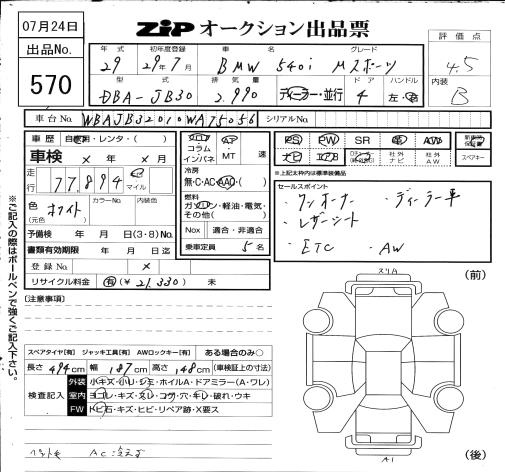 07月24日
ZIP オークション出品票
評価点
4.5
内装
B
出品No.
570
年式 初年度登録 車名 グレード
29 29年7月 BMW 540i Mスポーツ
型式 排気量 ドア ハンドル
DBA-JB30 2,990 ディーラー・並行 4 左・右
車台No. WBAJB32010WA75056 シリアルNo.
車歴 自家用・レンタ・( )
車検 × 年 × 月
走行 77,894 マイル
色(元色) ホワイト カラーNo. 内装色
予備検 年 月 日(3・8)No.
書類有効期限 年 月 日迄
登録No. ×
リサイクル料金 有(¥ 21,330) 未
コラム インパネ AT MT 速
冷房
無・C・AC・AAC・( )
燃料
ガソリン・軽油・電気・その他( )
Nox 適合・非適合
乗車定員 5名
PS PW SR 革 AW
ナビ 社外ナビ 社外AW
新車時保証書
スペアキー
※上記太枠内は標準装備品
セールスポイント
・ワンオーナー ・ディーラー車
・レザーシート
・ETC ・AW
[注意事項]
スペアタイヤ[有] ジャッキ工具[有] AWロックキー[有] ある場合のみ○
長さ 494cm 幅 187cm 高さ 148cm (車検証上の寸法)
検査記入
外装 小キズ・小ヘコ・シミ・ホイルA・ドアミラー(A・ワレ)
室内 ヨゴレ・キズ・スレ・コゲ・穴・キレ・破れ・ウキ
FW トビ石・キズ・ヒビ・リペア跡・X要ス
AC冷えず
※ご記入の際はボールペンで強くご記入下さい。
(前)
スリA
(後)
A1